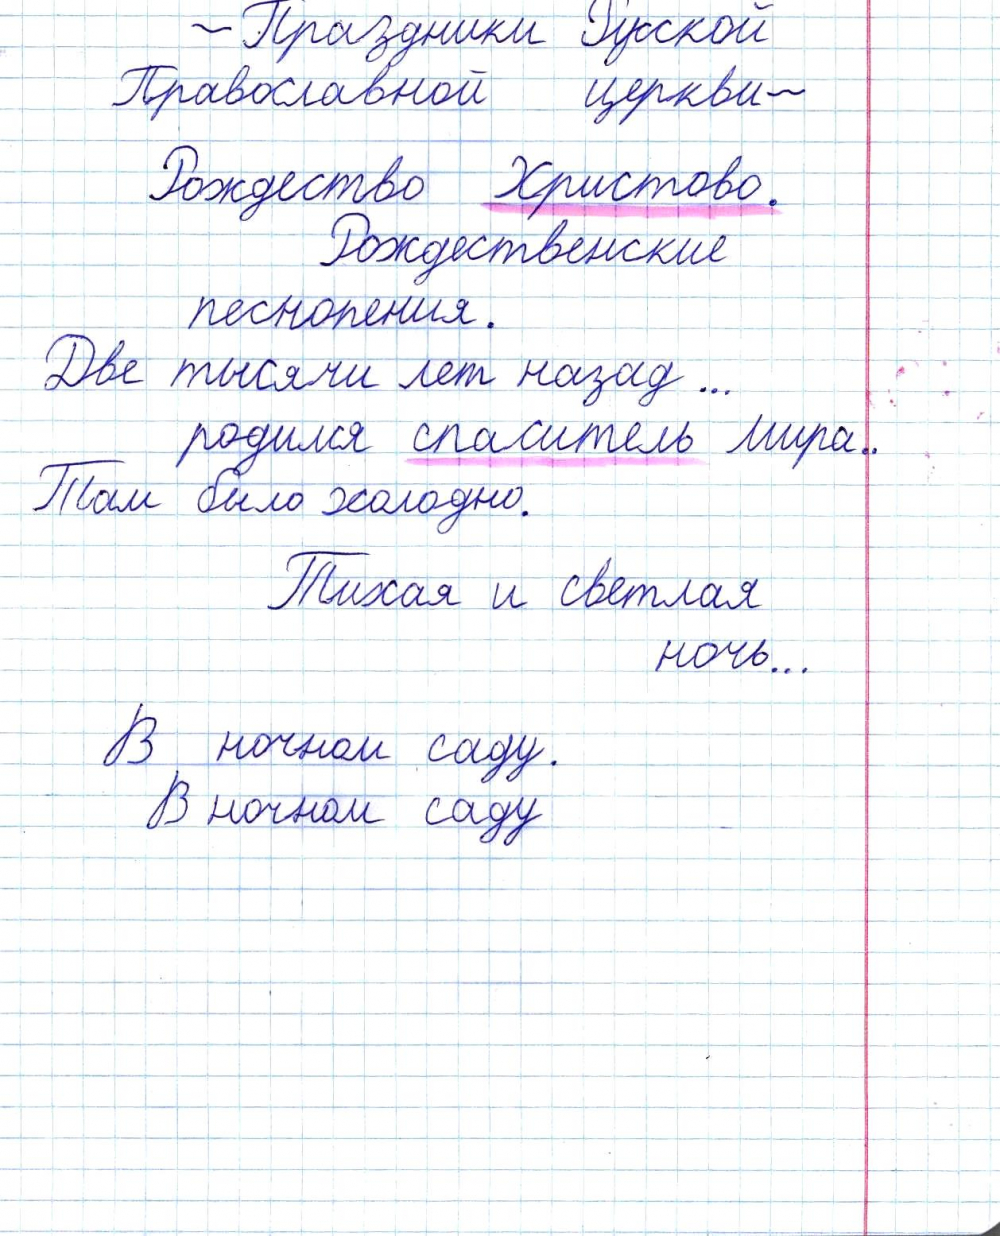 ~Праздники Русской
Православной церкви~
Рождество Христово.
Рождественские
песнопения.
Две тысячи лет назад...
родился спаситель мира..
Там было холодно.
Тихая и светлая
ночь...
В ночном саду.
В ночном саду